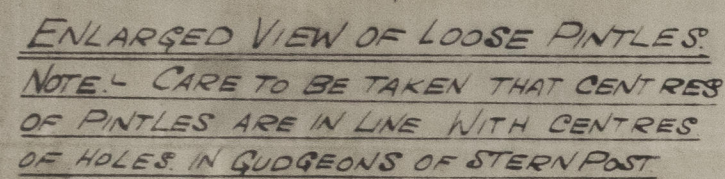 ENLARGED VIEW OF LOOSE PINTLES.
NOTE:- CARE TO BE TAKEN THAT CENTRES
OF PINTLES ARE IN LINE WITH CENTRES
OF HOLES. IN GUDGEONS OF STERN POST